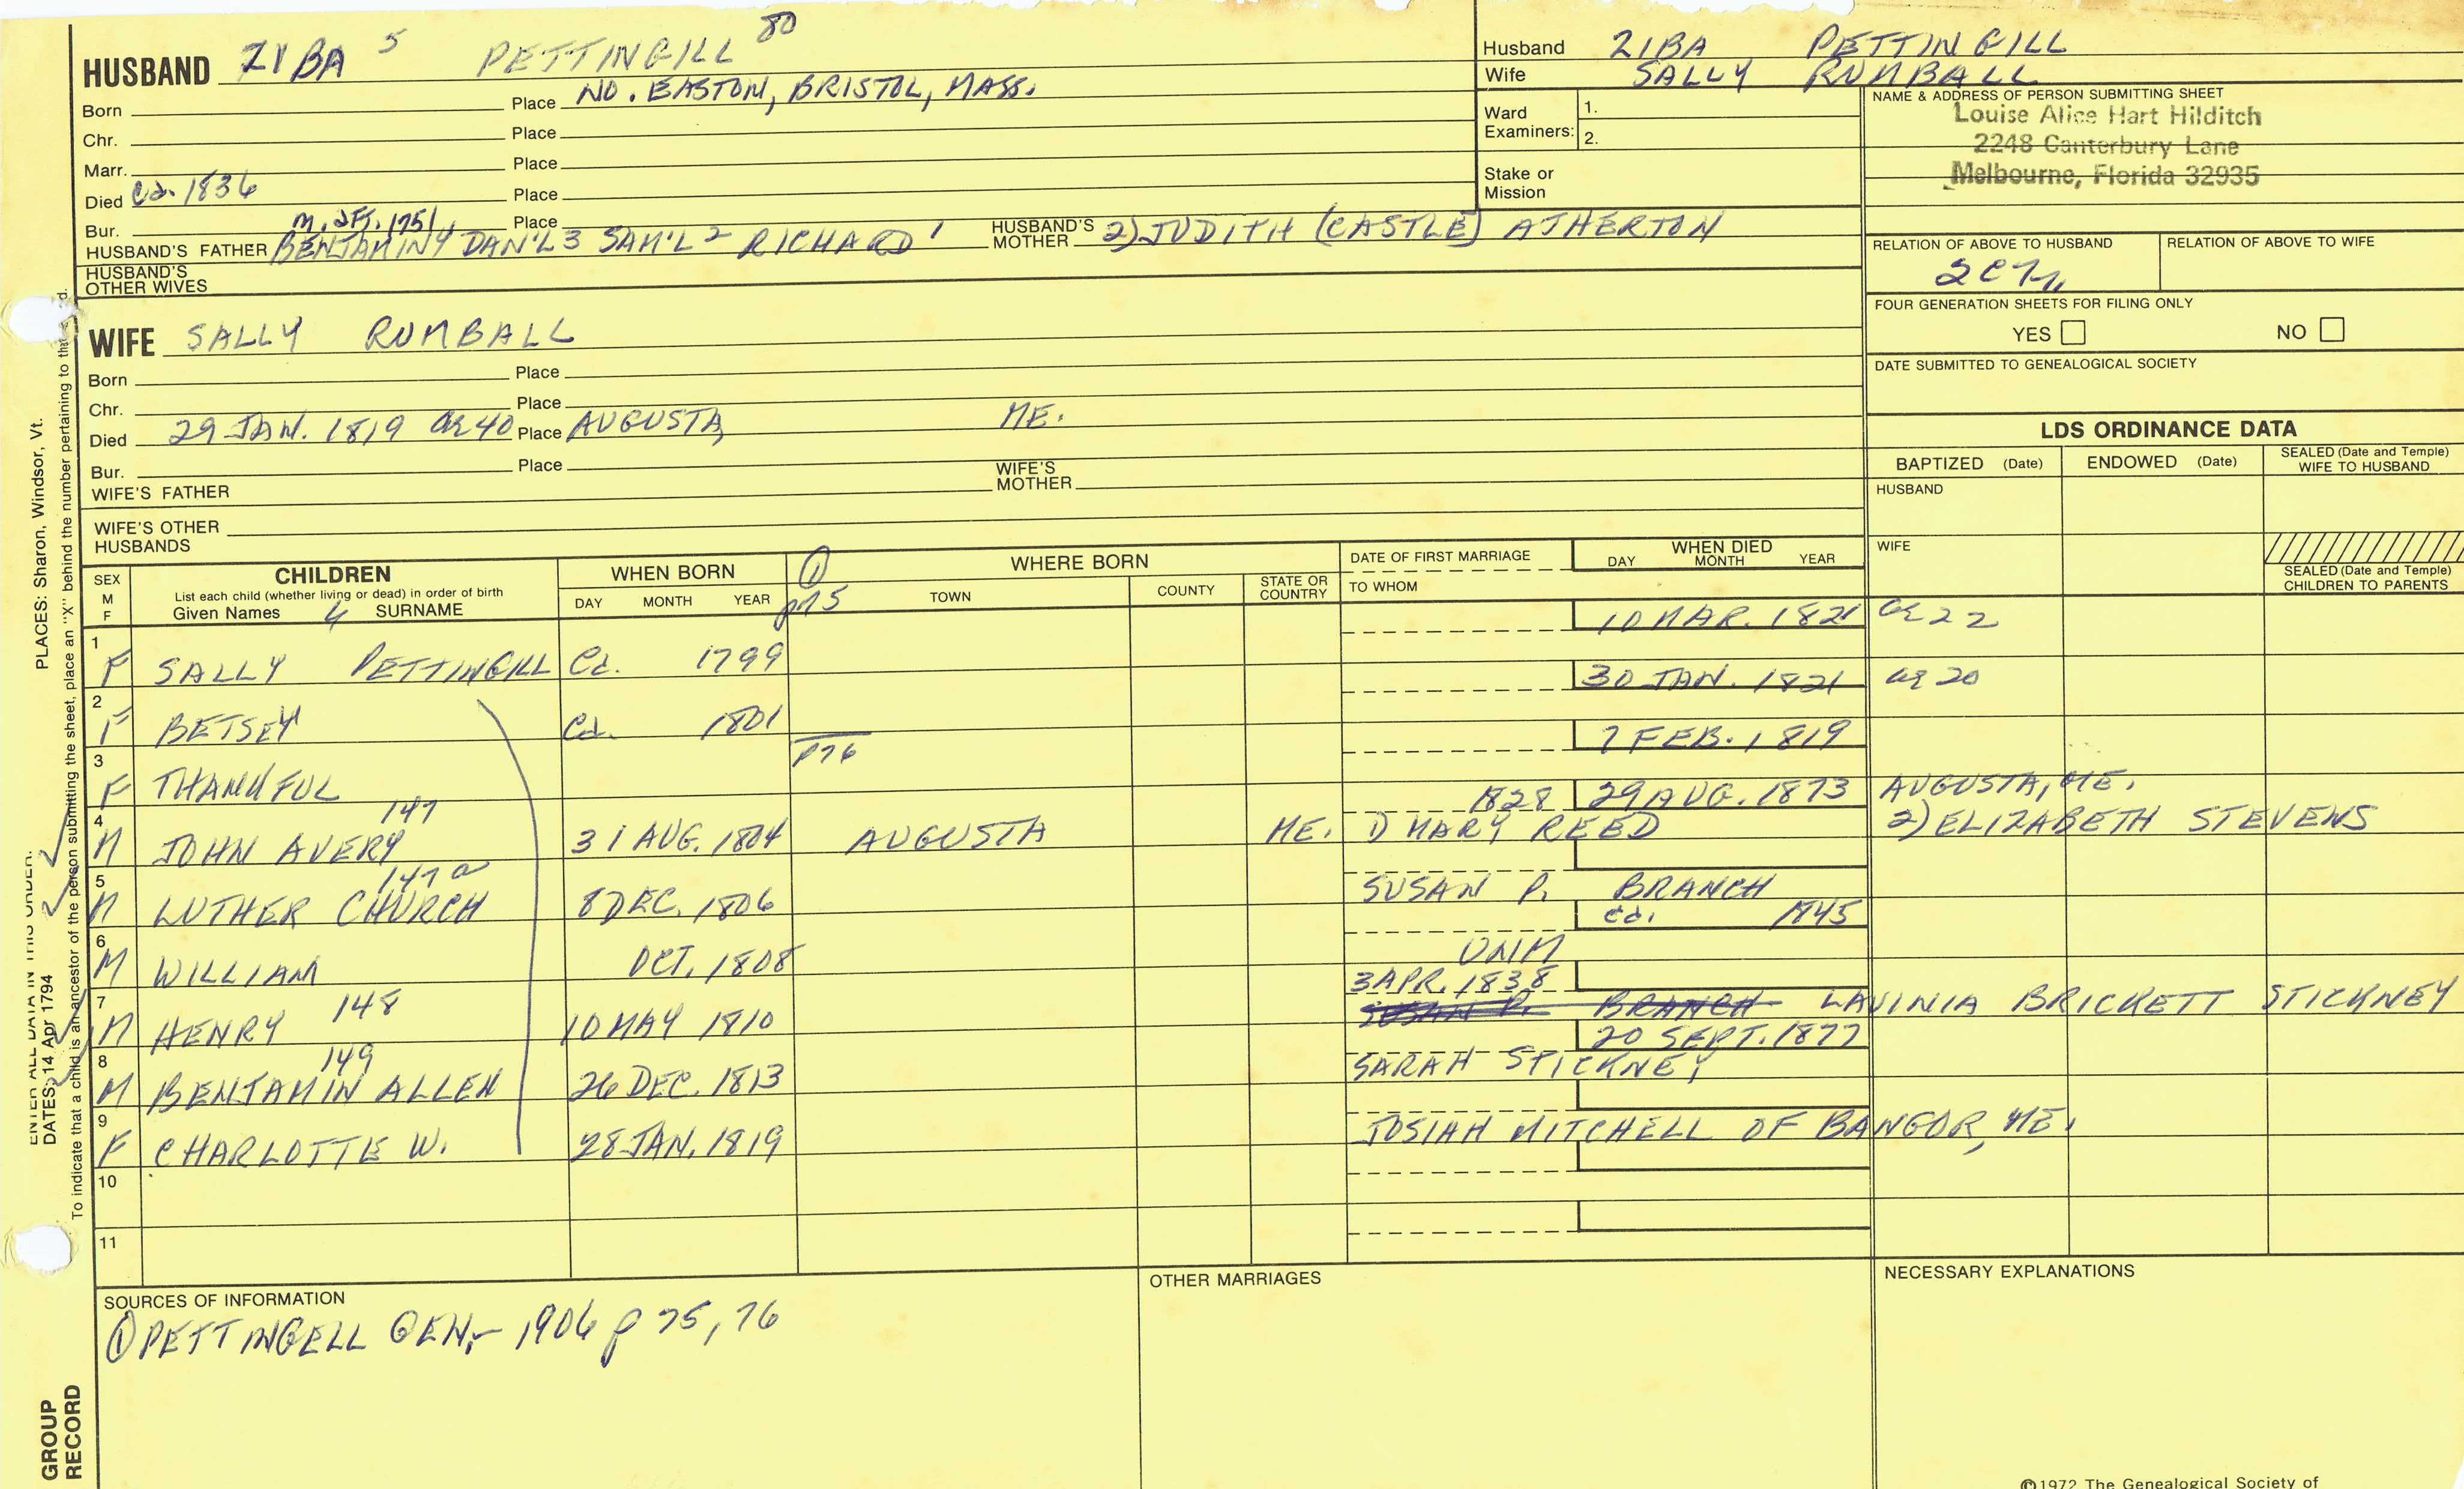 HUSBAND ZIBA 5 PETTINGILL 80
Born Place NO. EASTON, BRISTOL, MASS.
Chr. Place
Marr. Place
Died Ca. 1836 Place
Bur. Place
M. aft. 1751
HUSBAND'S FATHER BENJAMIN 4 DAN'L 3 SAM'L 2 RICHARD 1 HUSBAND'S MOTHER 2) JUDITH (CASTLE) ATHERTON
HUSBAND'S OTHER WIVES
Husband ZIBA PETTINGILL
Wife SALLY RUMBALL
Ward Examiners: 1.
2.
Stake or Mission
NAME & ADDRESS OF PERSON SUBMITTING SHEET
Louise Alice Hart Hilditch
2248 Canterbury Lane
Melbourne, Florida 32935
RELATION OF ABOVE TO HUSBAND RELATION OF ABOVE TO WIFE
FOUR GENERATION SHEETS FOR FILING ONLY
YES NO
DATE SUBMITTED TO GENEALOGICAL SOCIETY
WIFE SALLY RUMBALL
Born Place
Chr. Place
Died 29 JAN. 1819 ae 40 Place AUGUSTA, ME.
Bur. Place
WIFE'S FATHER WIFE'S MOTHER
WIFE'S OTHER HUSBANDS
LDS ORDINANCE DATA
BAPTIZED (Date) ENDOWED (Date) SEALED (Date and Temple) WIFE TO HUSBAND
HUSBAND
WIFE
SEALED (Date and Temple) CHILDREN TO PARENTS
SEX M F
CHILDREN
List each child (whether living or dead) in order of birth
Given Names SURNAME
WHEN BORN
DAY MONTH YEAR
1 p75
WHERE BORN
TOWN COUNTY STATE OR COUNTRY
DATE OF FIRST MARRIAGE
TO WHOM
WHEN DIED
DAY MONTH YEAR
1 F SALLY PETTINGILL Ca. 1799 10 MAR. 1821 ae 22
2 F BETSEY Ca. 1801 30 JAN. 1821 ae 20
p76
3 F THANKFUL 7 FEB. 1819
4 M JOHN AVERY 147 31 AUG. 1804 AUGUSTA ME. 1828 1) MARY REED 29 AUG. 1873 AUGUSTA, ME.
2) ELIZABETH STEVENS
5 M LUTHER CHURCH 147a 8 DEC. 1806 SUSAN P. BRANCH
6 M WILLIAM OCT. 1808 UNM ca. 1845
7 M HENRY 148 10 MAY 1810 3 APR. 1838 SUSAN P. BRANCH LAVINIA BRICKETT STICKNEY
8 M BENJAMIN ALLEN 149 26 DEC. 1813 SARAH STICKNEY 20 SEPT. 1877
9 F CHARLOTTE W. 28 JAN. 1819 JOSIAH MITCHELL OF BANGOR, ME.
10
11
SOURCES OF INFORMATION
1 PETTINGELL GEN, - 1906 p 75, 76
OTHER MARRIAGES
NECESSARY EXPLANATIONS
©1972 The Genealogical Society of
PLACES: Sharon, Windsor, Vt.
ENTER ALL DATA IN THIS ORDER:
DATES: 14 Apr 1794
To indicate that a child is an ancestor of the person submitting the sheet, place an "X" behind the number pertaining to
GROUP RECORD